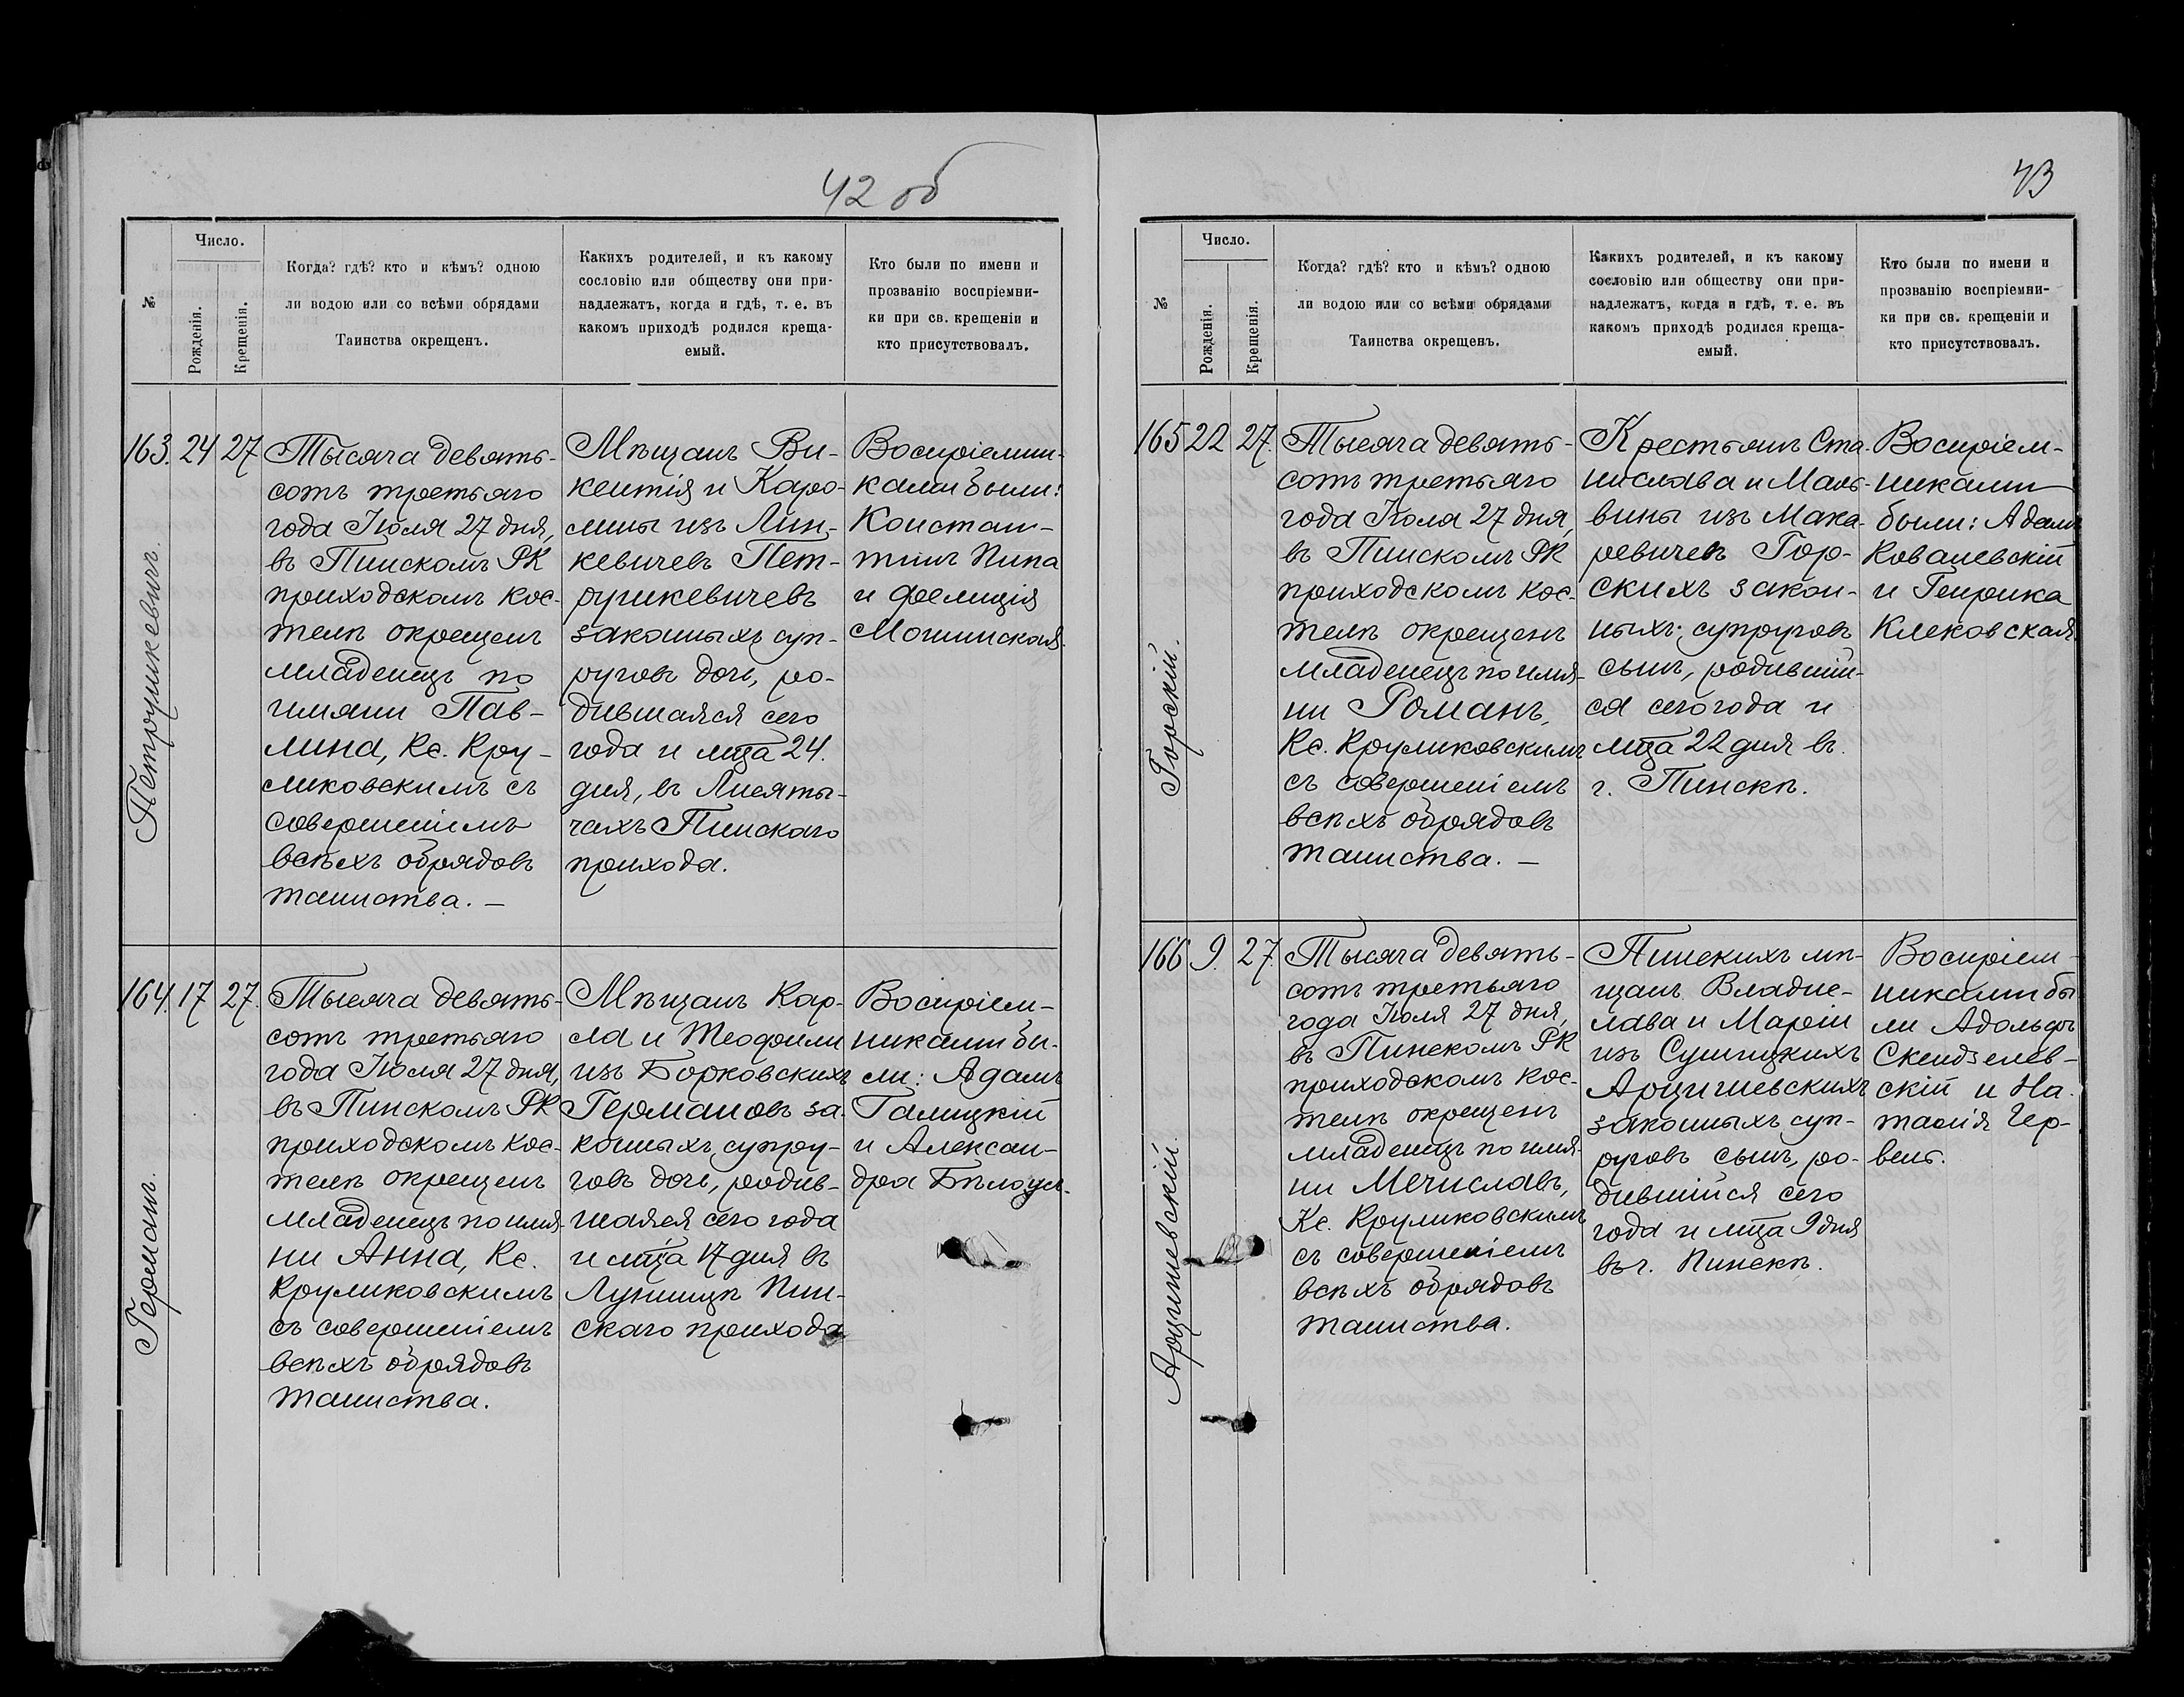 42 об
№
Число.
Рожденія.
Крещенія.
Когда? гдѣ? кто и кѣмъ? одною
ли водою или со всѣми обрядами
Таинства окрещенъ.
Какихъ родителей, и къ какому
сословію или обществу они при-
надлежатъ, когда и гдѣ, т. е. въ
какомъ приходѣ родился креща-
емый.
Кто были по имени и
прозванію воспріемни-
ки при св. крещеніи и
кто присутствовалъ.
163. 24 27
Петрушкевичъ.
Тысяча девять-
сотъ третьяго
года Іюля 27 дня,
въ Пинскомъ РК
приходскомъ кос-
телѣ окрещенъ
младенецъ по
имяни Пав-
лина, Кс. Кру-
ликовскимъ съ
совершеніемъ
всѣхъ обрядовъ
таинства. —
Мѣщанъ Ви-
кентія и Каро-
лины изъ Лин-
кевичевъ Пет-
рушкевичевъ
законныхъ суп-
руговъ дочь, ро-
дившаяся сего
года и мца 24.
дня, въ Лисяты-
чахъ Пинскаго
прихода.
Воспріемни-
ками были:
Констан-
тинъ Пипа
и Фелиція
164. 17 27.
Германъ.
Тысяча девять-
сотъ третьяго
года Іюля 27 дня,
въ Пинскомъ РК
приходскомъ кос-
телѣ окрещенъ
младенецъ по имя-
ни Анна, Кс.
Круликовскимъ
съ совершеніемъ
всѣхъ обрядовъ
таинства.
Мѣщанъ Кар-
ла и Теофили
изъ Борковскихъ
Германовъ за-
конныхъ супру-
говъ дочь, родив-
шаяся сего года
и мца 17 дня въ
Лунинцѣ Пин-
скаго прихода
Воспріем-
никами бы-
ли: Адамъ
Галицкій
и Алексан-
дра Бѣлоус.
43
№
Число.
Рожденія.
Крещенія.
Когда? гдѣ? кто и кѣмъ? одною
ли водою или со всѣми обрядами
Таинства окрещенъ.
Какихъ родителей, и къ какому
сословію или обществу они при-
надлежатъ, когда и гдѣ, т. е. въ
какомъ приходѣ родился креща-
емый.
Кто были по имени и
прозванію воспріемни-
ки при св. крещеніи и
кто присутствовалъ.
165 22 27.
Горскій.
Тысяча девять-
сотъ третьяго
года Іюля 27 дня,
въ Пинскомъ РК
приходскомъ кос-
телѣ окрещенъ
младенецъ по имя-
ни Романъ,
Кс. Круликовскимъ
съ совершеніемъ
всѣхъ обрядовъ
таинства. —
Крестьянъ Ста-
нислава и Маль-
вины изъ Мака-
ревичевъ Гор-
скихъ закон-
ныхъ супруговъ
сынъ, родившій-
ся сего года и
мца 22 дня въ
г. Пинскѣ.
Воспріем-
никами
были: Адамъ
Ковалевскій
и Генрика
Клековская.
166 9. 27.
Арцишевскій.
Тысяча девять-
сотъ третьяго
года Іюля 27 дня,
въ Пинскомъ РК
приходскомъ кос-
телѣ окрещенъ
младенецъ по имя-
ни Мечиславъ,
Кс. Круликовскимъ
съ совершеніемъ
всѣхъ обрядовъ
таинства.
Пинскихъ мѣ-
щанъ Владис-
лава и Маріи
изъ Сушицкихъ
Арцишевскихъ
законныхъ суп-
руговъ сынъ, ро-
дившійся сего
года и мца 9 дня
въ г. Пинскѣ.
Воспріем-
никами бы
ли Адольфъ
Скендзелев-
скій и На-
талія Чер-